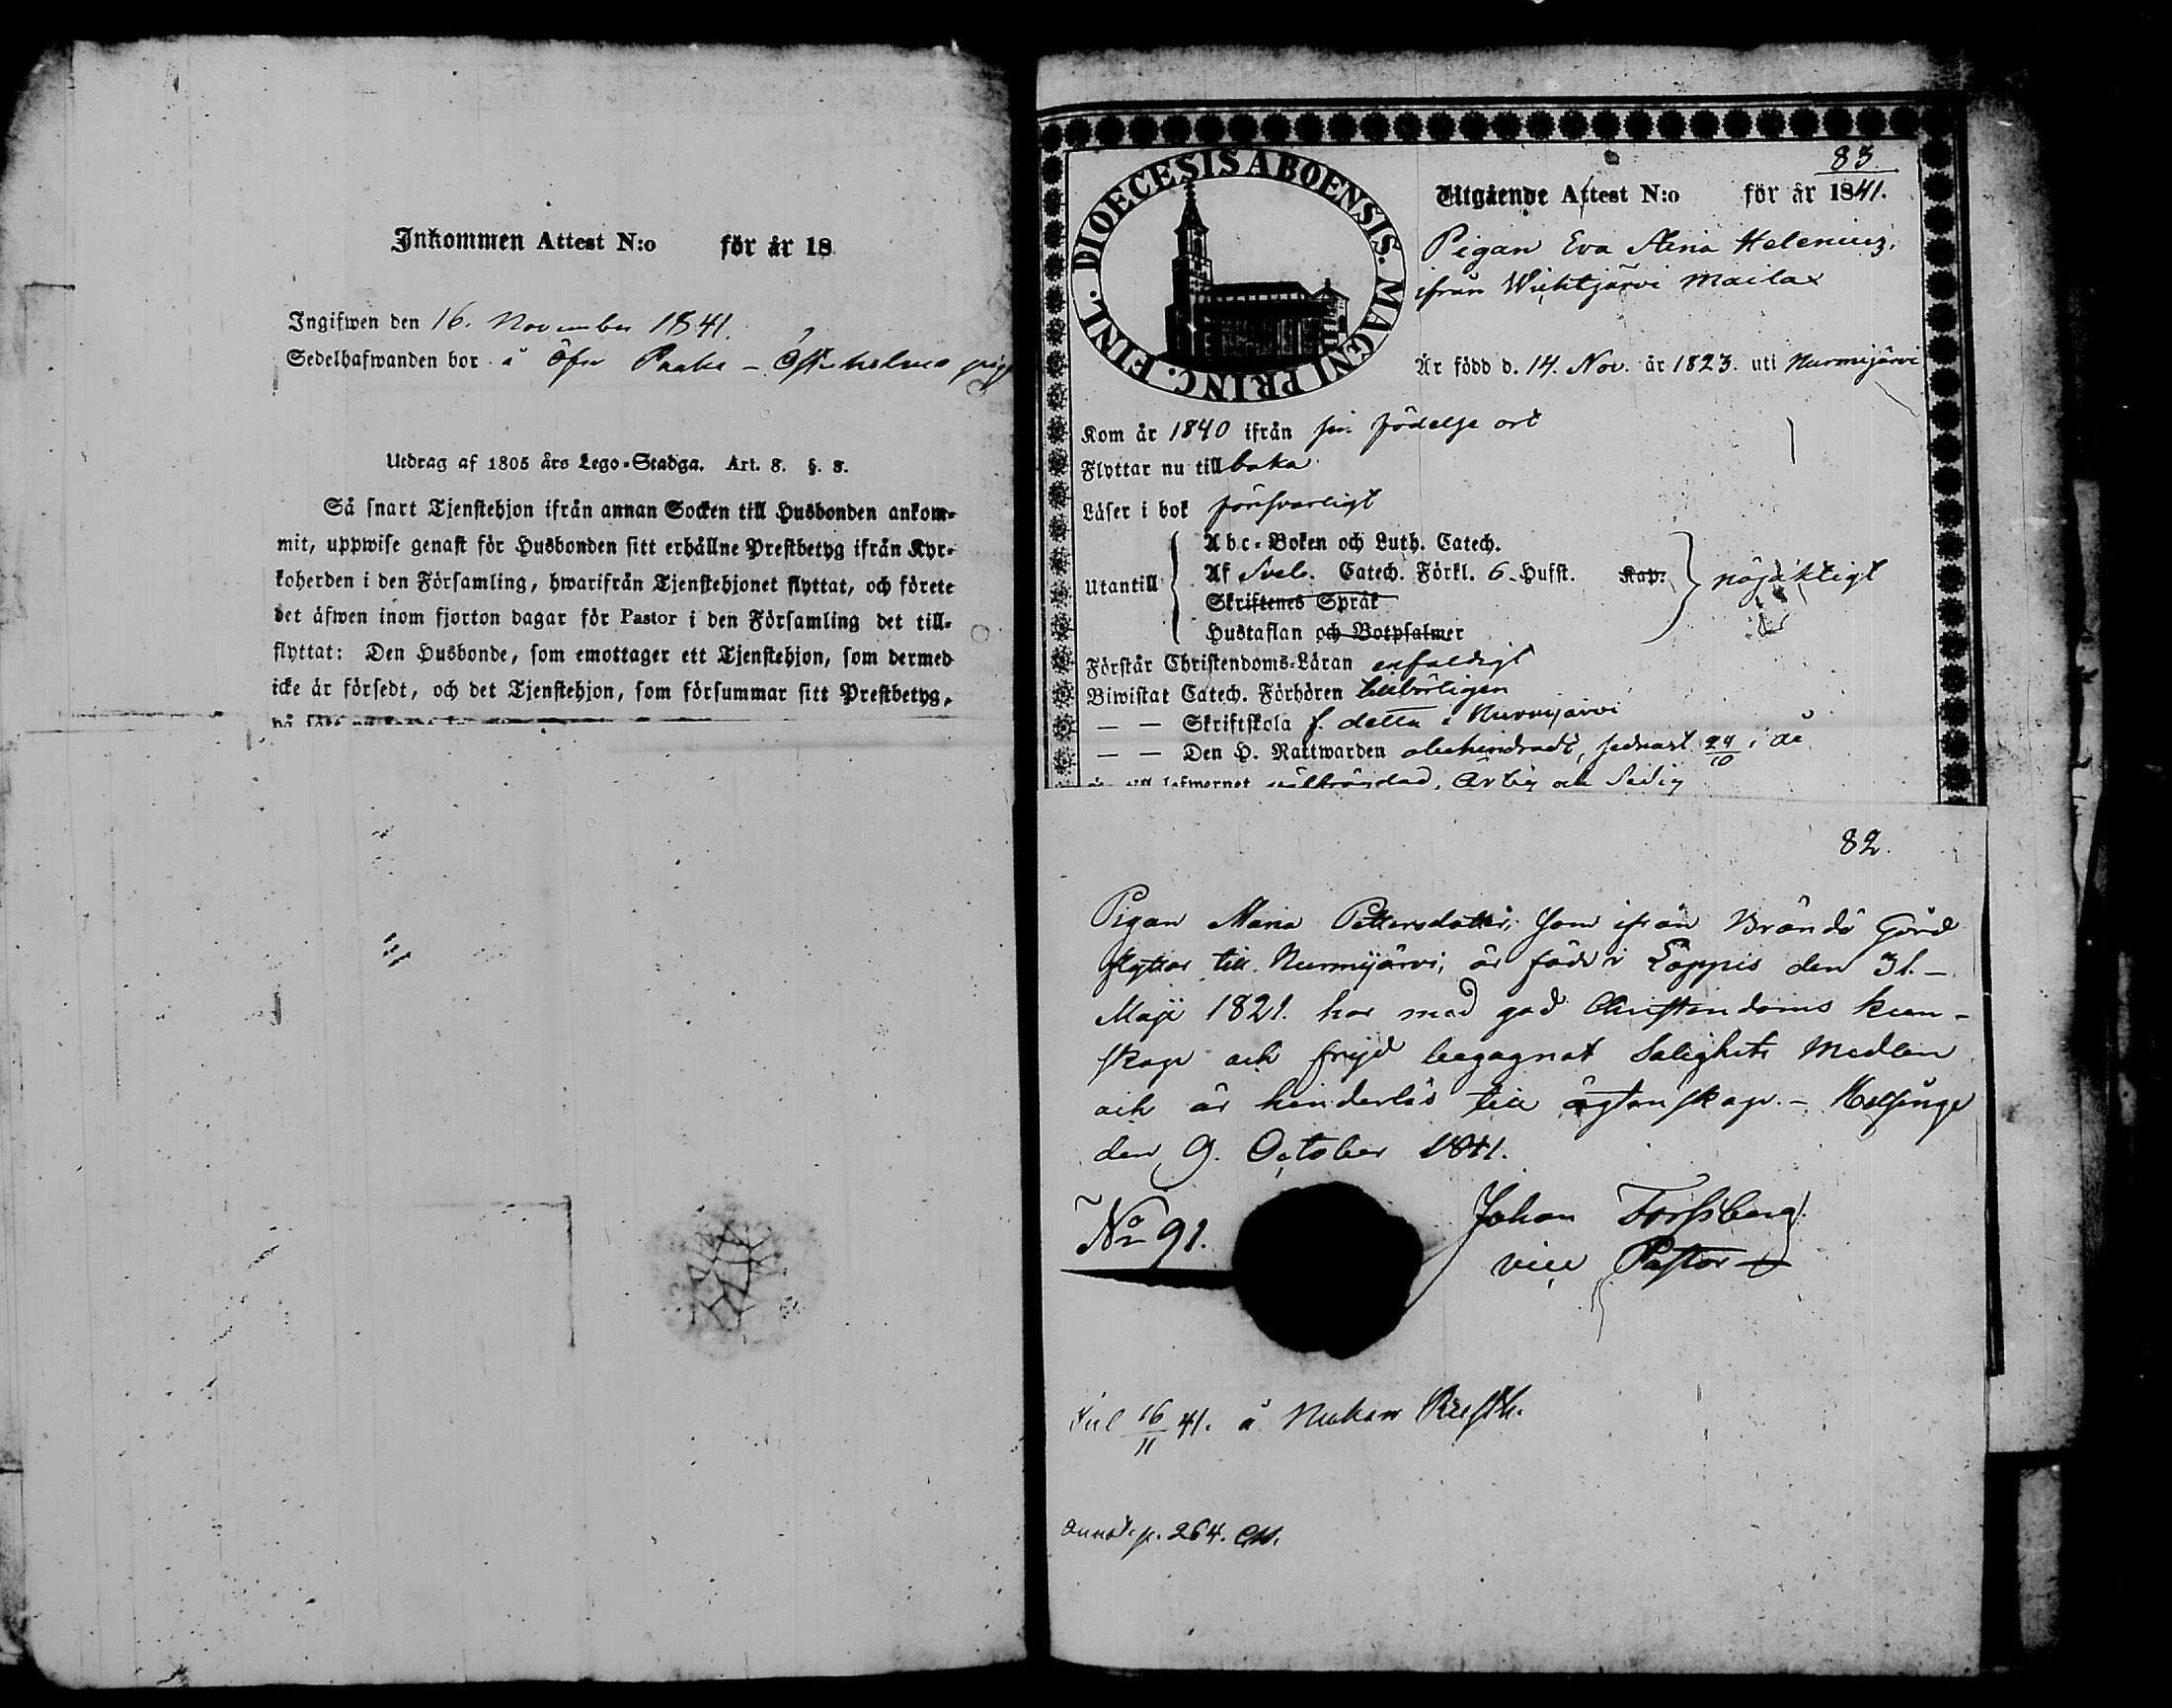 Inkommen Attest N:o för år 18
Ingifwen den 16. November 1841.
Sedelhafwanden bor å Öfver
Utdrag af 1805 års Lego-Stadga. Art. 8. §. 8.
Så snart Tjenstehjon ifrån annan Socken till Husbonden ankom-
mit, uppwise genast för Husbonden sitt erhållne Prestbetyg ifrån Kyr-
koherden i den Församling, hwarifrån Tjenstehjonet flyttat, och förete
det äfwen inom fjorton dagar för Pastor i den Församling det till-
flyttat: Den Husbonde, som emottager ett Tjenstehjon, som dermed
icke är försedt, och det Tjenstehjon, som försummar sitt Prestbetyg,
DIOECESIS ABOENSIS. MAGNI PRINC. FINL.
83
Utgående Attest N:o för år 1841.
Pigan Eva Stina Helenius
ifrån Wichtjärvi Mailax
Är född d. 14. Nov. år 1823. uti Nurmijärvi
Kom år 1840 ifrån sin födelse ort
Flyttar nu tillbaka
Läser i bok försvarligt
Abc-Boken och Luth. Catech.
Utantill Af Sveb. Catech. Förkl. 6 Hufst. Kap. nöjaktigt
Skriftenes Språk
Hustaflan och Botpsalmer
Förstår Christendoms-Läran enfaldigt
Biwistat Catech. Förhören behörigen
— — Skriftskola f. detta i Nurmijärvi
— — Den H. Nattwarden obehindradt, sednast 24/10 i år
lefwernet välfrägdad, Ärlig och Sedig
82.
Pigan Maria Pettersdotter, som ifrån Brändö Gård
flyttar till Nurmijärvi, är född i Loppis den 31.-
Maji 1821. har med god Christendoms kun-
skap och frejd begagnat Salighets Medlen
och är hinderlös till ägtenskap.- Helsinge
den 9. October 1841.
No 91.
Johan Forssberg
vice Pastor
16/11 41. å
Annot. p. 264.